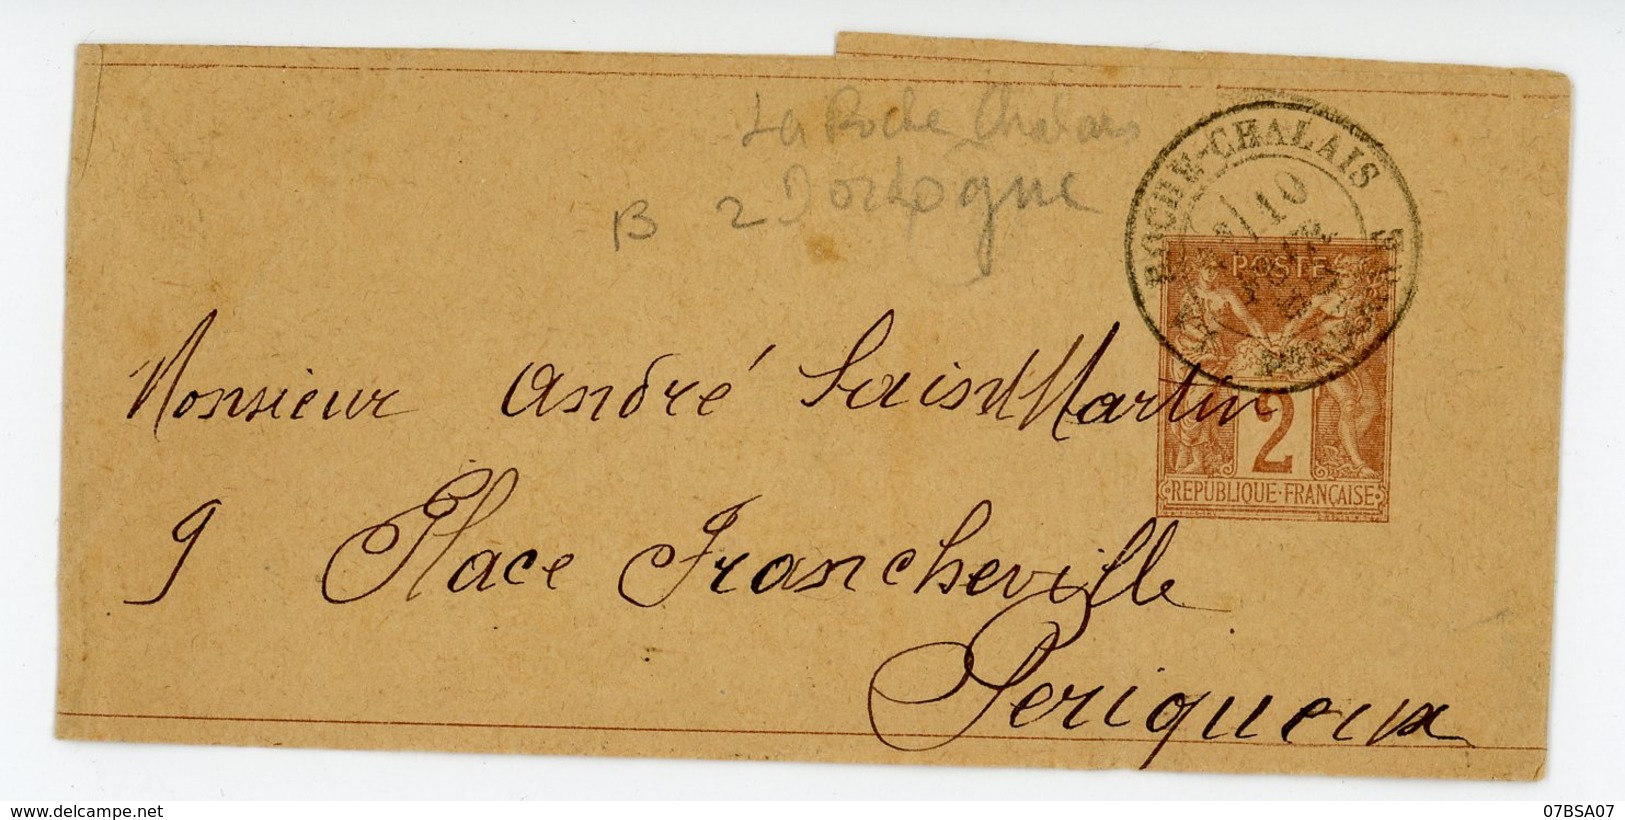 La Roche Chalais
B 2 Dordogne
LA ROCHE-CHALAIS
10
DORDOGNE
POSTE
2
REPUBLIQUE·FRANÇAISE
Monsieur André Saint Martin
9 Place Francheville
Periqueux
www.delcampe.net
07BSA07